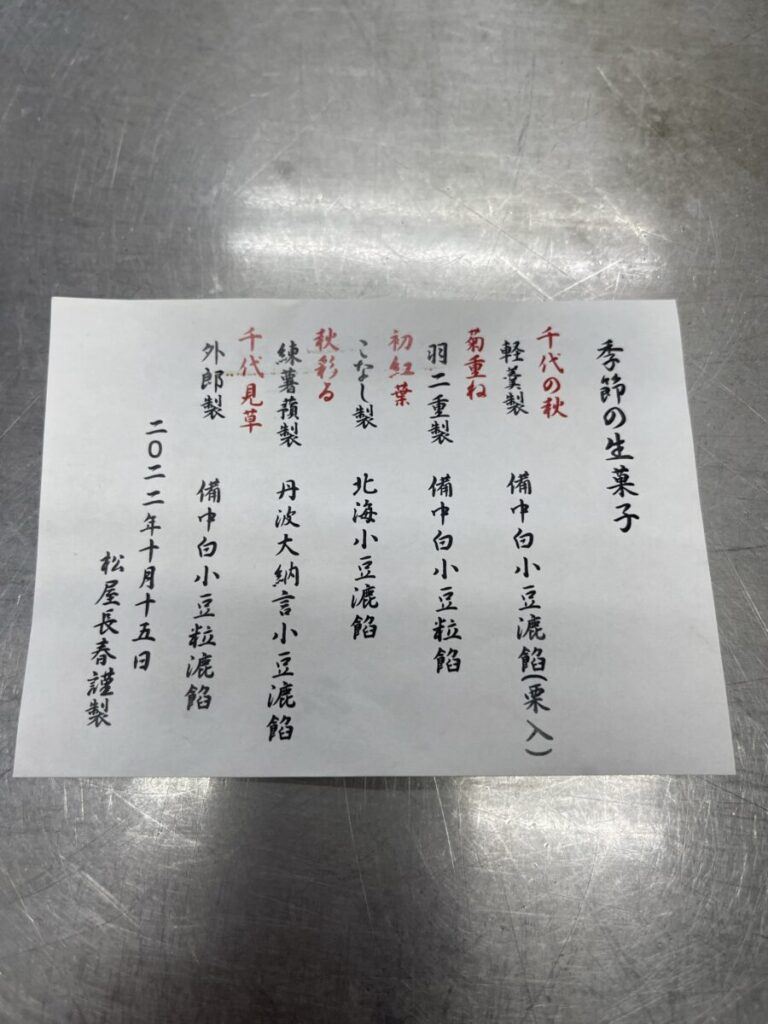 季節の生菓子
千代の秋
軽羹製　備中白小豆漉餡(栗入)
菊重ね
羽二重製　備中白小豆粒餡
初紅葉
こなし製　北海小豆漉餡
秋彩る
練薯蕷製　丹波大納言小豆漉餡
千代見草
外郎製　備中白小豆粒漉餡
二〇二二年十月十五日
松屋長春謹製